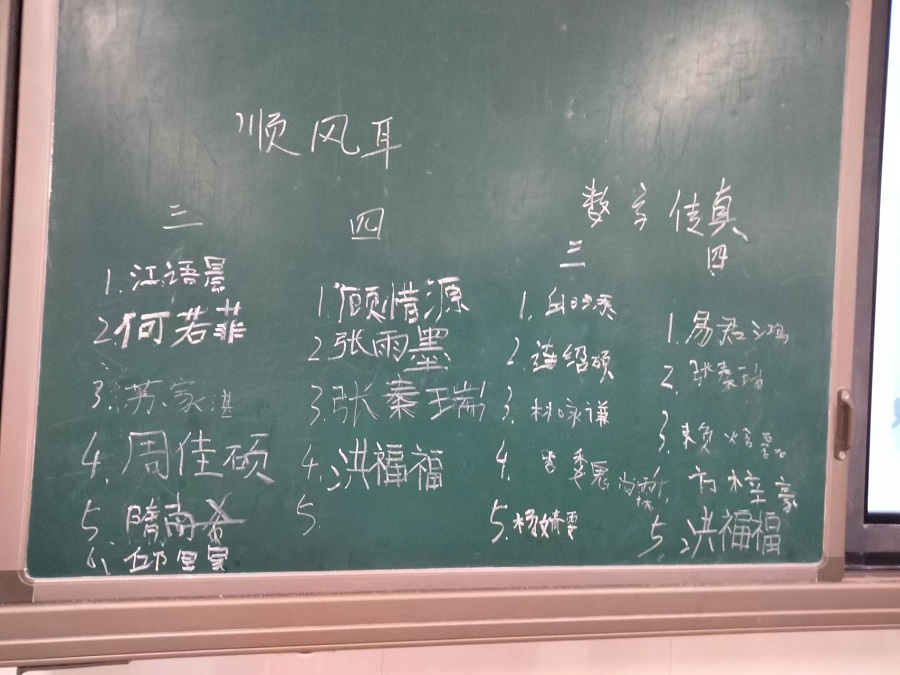 顺风耳
三
1.江语晨
2.何若菲
3.苏家湛
4.周佳硕
5.隋南
6.邱
四
1.顾惜源
2.张雨墨
3.张秦瑞
4.洪福福
5.
数字传真
三
1.
2.连绍硕
3.林咏谦
4.
5.杨婧雯
四
1.易君鸿
2.张秦瑞
3.
梓豪
5.洪福福